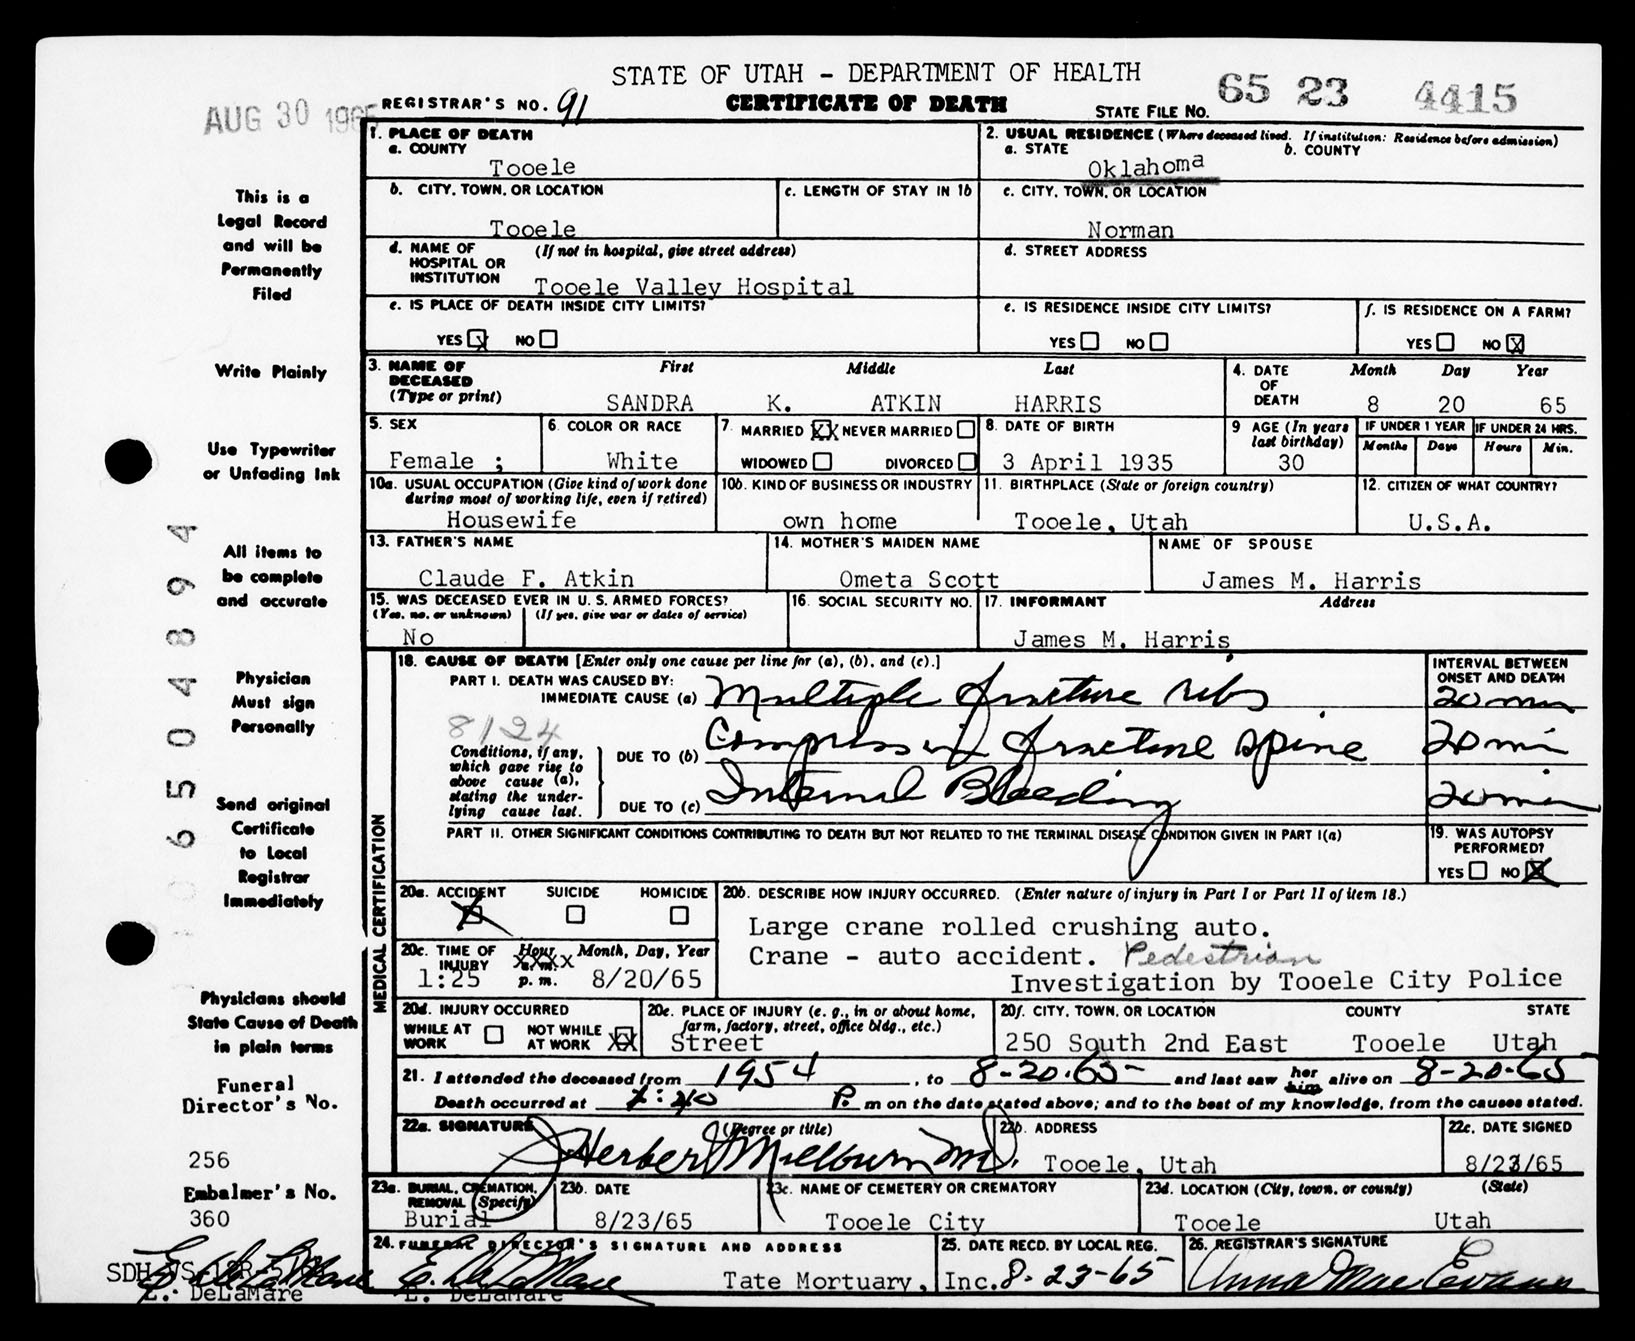 STATE OF UTAH - DEPARTMENT OF HEALTH
AUG 30 REGISTRAR'S NO. 91 CERTIFICATE OF DEATH STATE FILE NO. 65 23 4415
1. PLACE OF DEATH
a. COUNTY
Tooele
2. USUAL RESIDENCE (Where deceased lived. If institution: Residence before admission)
a. STATE b. COUNTY
Oklahoma
b. CITY, TOWN, OR LOCATION
Tooele
c. LENGTH OF STAY IN 1b
c. CITY, TOWN, OR LOCATION
Norman
d. NAME OF HOSPITAL OR INSTITUTION (If not in hospital, give street address)
Tooele Valley Hospital
d. STREET ADDRESS
e. IS PLACE OF DEATH INSIDE CITY LIMITS?
YES X NO
e. IS RESIDENCE INSIDE CITY LIMITS?
YES NO
f. IS RESIDENCE ON A FARM?
YES NO X
3. NAME OF DECEASED (Type or print)
First Middle Last
SANDRA K. ATKIN HARRIS
4. DATE OF DEATH
Month Day Year
8 20 65
5. SEX
Female ;
6. COLOR OR RACE
White
7. MARRIED XX NEVER MARRIED
WIDOWED DIVORCED
8. DATE OF BIRTH
3 April 1935
9 AGE (In years last birthday)
30
IF UNDER 1 YEAR IF UNDER 24 HRS.
Months Days Hours Min.
10a. USUAL OCCUPATION (Give kind of work done during most of working life, even if retired)
Housewife
10b. KIND OF BUSINESS OR INDUSTRY
own home
11. BIRTHPLACE (State or foreign country)
Tooele, Utah
12. CITIZEN OF WHAT COUNTRY?
U.S.A.
13. FATHER'S NAME
Claude F. Atkin
14. MOTHER'S MAIDEN NAME
Ometa Scott
NAME OF SPOUSE
James M. Harris
15. WAS DECEASED EVER IN U.S. ARMED FORCES?
(Yes, no, or unknown) (If yes, give war or dates of service)
No
16. SOCIAL SECURITY NO.
17. INFORMANT Address
James M. Harris
MEDICAL CERTIFICATION
18. CAUSE OF DEATH [Enter only one cause per line for (a), (b), and (c).]
INTERVAL BETWEEN ONSET AND DEATH
PART I. DEATH WAS CAUSED BY:
IMMEDIATE CAUSE (a) Multiple fracture ribs 20 min
8124
Conditions, if any, which gave rise to above cause (a), stating the underlying cause last.
DUE TO (b) Compression fracture spine 20 min
DUE TO (c) Internal Bleeding 20 min
PART II. OTHER SIGNIFICANT CONDITIONS CONTRIBUTING TO DEATH BUT NOT RELATED TO THE TERMINAL DISEASE CONDITION GIVEN IN PART I(a)
19. WAS AUTOPSY PERFORMED?
YES NO X
20a. ACCIDENT SUICIDE HOMICIDE
X
20b. DESCRIBE HOW INJURY OCCURRED. (Enter nature of injury in Part I or Part II of item 18.)
Large crane rolled crushing auto.
Crane - auto accident. Pedestrian
Investigation by Tooele City Police
20c. TIME OF INJURY Hour Month, Day, Year
XXXX
1:25 p. m. 8/20/65
20d. INJURY OCCURRED
WHILE AT WORK NOT WHILE AT WORK XX
20e. PLACE OF INJURY (e. g., in or about home, farm, factory, street, office bldg., etc.)
Street
20f. CITY, TOWN, OR LOCATION COUNTY STATE
250 South 2nd East Tooele Utah
21. I attended the deceased from 1954, to 8-20-65 and last saw her him alive on 8-20-65
Death occurred at 1:40 P. m on the date stated above; and to the best of my knowledge, from the causes stated.
22a. SIGNATURE (Degree or title)
Herbert Milburn M.D.
22b. ADDRESS
Tooele, Utah
22c. DATE SIGNED
8/23/65
23a. BURIAL, CREMATION, REMOVAL (Specify)
Burial
23b. DATE
8/23/65
23c. NAME OF CEMETERY OR CREMATORY
Tooele City
23d. LOCATION (City, town, or county) (State)
Tooele Utah
24. FUNERAL DIRECTOR'S SIGNATURE AND ADDRESS
E. DeLaMare Tate Mortuary, Inc.
E. DeLaMare
25. DATE RECD. BY LOCAL REG.
8-23-65
26. REGISTRAR'S SIGNATURE
Anna Mae Evans
This is a
Legal Record
and will be
Permanently
Filed
Write Plainly
Use Typewriter
or Unfading Ink
All items to
be complete
and accurate
Physician
Must sign
Personally
Send original
Certificate
to Local
Registrar
Immediately
Physicians should
State Cause of Death
in plain terms
Funeral
Director's No.
256
Embalmer's No.
360
E. DeLaMare
E. DeLaMare
06504894